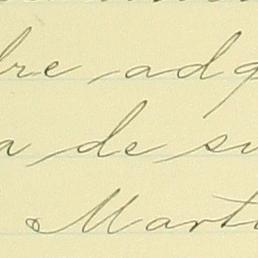 re adq
a de su
Mart